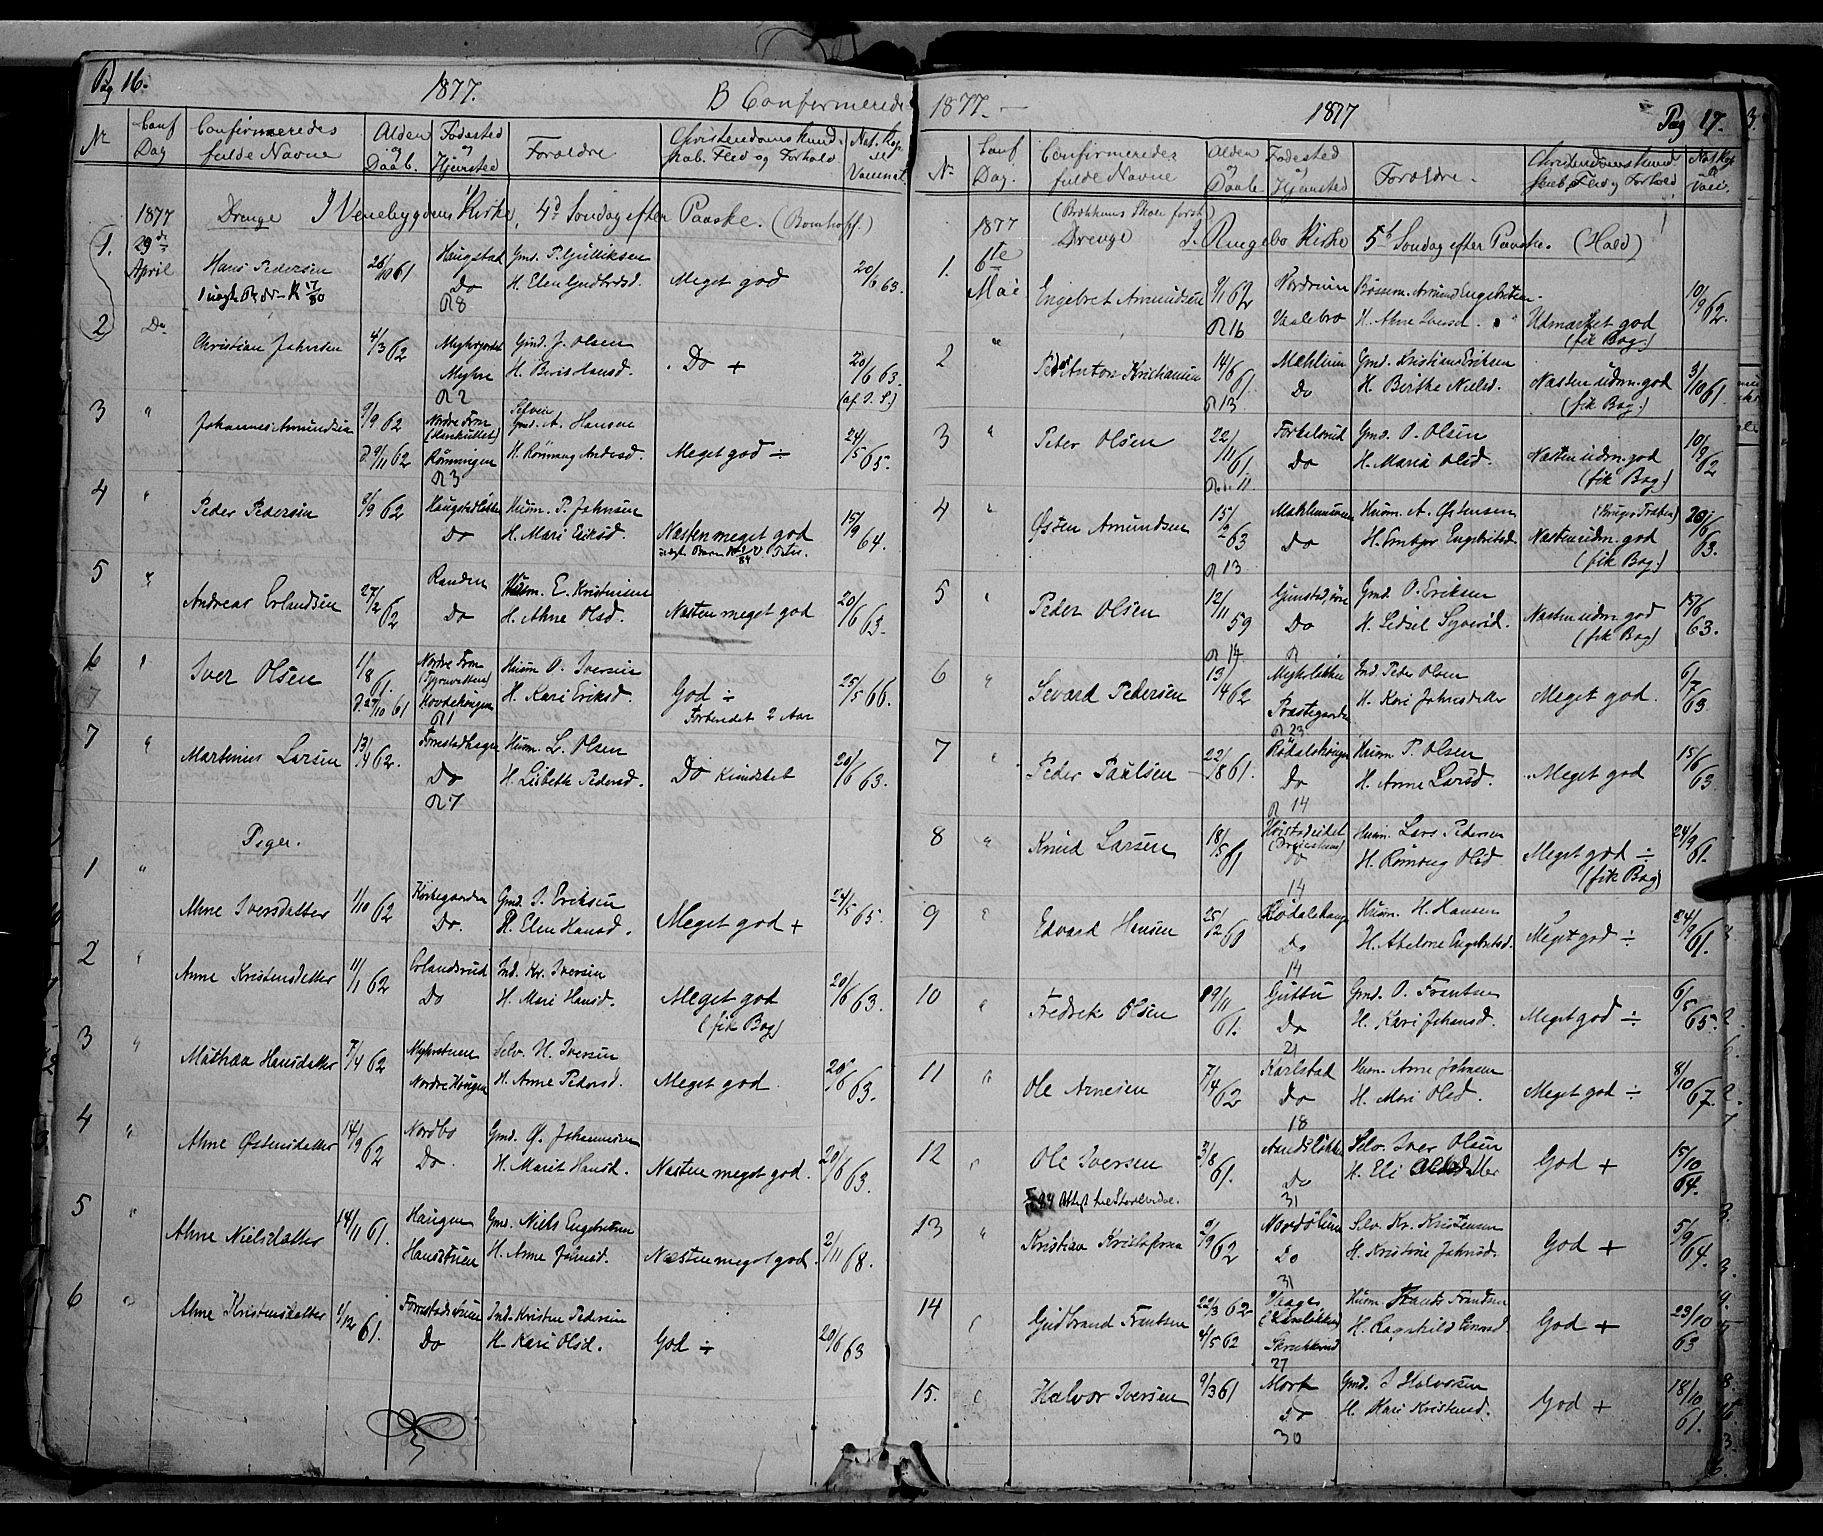 Pag 16.
1877.
B Confirmerede
Nr
Conf Dag
Confirmeredes fulde Navne
Alder og Daab.
Fødested og Hjemsted
Forældre
Christendomskundskab. Flid og Forhold.
Nat. Kop. Vaccinat.
1877 Drenge I Venebygdens Kirke, 4de Søndag efter Paaske. (Bomhoff.)
1. 29de April Hans Pedersen 26/10 61 Haugstad Gmd. P. Gulliksen
Do H. Elen Gudbrdsd. Meget god 20/6 63.
R 8
2 Do Christian Johnsen 4/3 62 Gmd. J. Olsen
Myhre H. Berit Hansd. Do + 20/6 63.
R 2
3 " Johannes Amundsen 9/9 62 Nordre Fron Gmd. A. Hansen
D. 9/11 62 Rønningen H. Rønnaug Andersd. Meget god ÷ 24/5 65.
R 3
4 " Peder Pedersen 8/9 62 Haugstadløkken Huusm. P. Johnsen
Do H. Mari Eriksd. Næsten meget god 15/9 64.
5 " Andreas Erlandsen 27/2 62 Randen Huusm. E. Kristensen
Do H. Ahne Olsd. Næsten meget god 20/6 63.
6 " Iver Olsen 1/8 61. Nordre Fron Huusm. O. Iversen
D. 27/10 61 H. Kari Eriksd. God ÷ 25/5 66.
R 1 Forberedet 2 Aar
7 " Martinus Larsen 13/4 62. Huusm. L. Olsen
Do H. Lisbeth Pedersd. Do 20/6 63.
R 7
Piger.
1 " Ahne Iversdatter 1/10 62 Kirkegaarden Gmd. I. Eriksen
Do. H. Elen Hansd. Meget god + 24/5 65.
2 " Anne Kristensdatter 11/1 62 Erlandsrud Ind. Kr. Iversen
Do H. Mari Hansd. Meget god 20/6 63.
(fik Bog)
3 " Mathea Hansdatter 7/4 62 Myhrstuen Selv. H. Iversen
Nordre Haugen H. Anne Pedersd. Meget god. 20/6 63.
4 " Ahne Østensdatter 14/9 62 Nordbo Gmd. Ø. Johannesen
Do. H. Marit Hansd. Næsten meget god. 20/6 63.
5 " Ahne Nielsdatter 14/11 61. Haugen Gmd. Niels Engebretsen
Hansstuen H. Anne Johnsd. Næsten meget god. 2/11 68.
6 " Ahne Kristensdatter 1/12 61. Ind. Kristen Pedersen
Do H. Kari Olsd. God ÷ 20/6 63
1877.
1877
Pag 17.
Nr
Conf Dag.
Confirmeredes fulde Navne
Alder og Daab
Fødested og Hjemsted
Forældre.
Christendomskundskab, Flid og Forhold
Nat. Kop. Vacc.
(Brækkens Skole først)
1877 Drenge I. Ringebo Kirke 5te Søndag efter Paaske. (Hald)
1. 6te Mai Engebret Amundsen 9/1 62 Nordrum Amund Engebretsen
R 16 Vaalebro H. Ahne Iversd. Udmærket god 10/9 62.
(fik Bog.)
2 " Peder Anton Kristiansen 14/6 61. Mæhlum Gmd. Kristian Eriksen
R 13 Do H. Birthe Nielsd. Næsten udm. god 3/10 61.
(fik Bog.)
3 " Peter Olsen 22/11 61. Forkelsrud Gmd. O. Olsen
R 11 Do H. Maria Olsd. Næsten udm. god 10/9 62
(fik Bog)
4 " Østen Amundsen 15/2 63 Mæhlumsmoen Huusm. A. Østensen
Do H. Embjør Engebritsd. Næsten udm. god 20/6 63.
R 13 (fik Bog)
5 " Peder Olsen 12/11 59 Gunstad, øvre Gmd. O. Eriksen
Do H. Sidsel Syverid. Næsten udm. god 15/6 63.
R 14 (fik Bog)
6 " Sevard Pedersen 13/4 62 Ind. Peder Olsen
Præstegaarden H. Kari Johnsdatter Meget god. 6/7 63
R 23
7 " Peder Paulsen 22/8 61. Huusm. P. Olsen
Do H. Anne Larsd. Meget god 15/6 63
R 14
8 " Knud Larsen 18/5 61 Huusm. Lars Pedersen
Do H. Rønnaug Olsd Meget god ÷ 24/9 61.
14 (fik Bog)
9 " Edvard Hansen 25/12 60 Huusm. H. Hansen
Do H. Abelone Engebritsd. Meget god ÷ 24/9 61.
14
10 " Fredrik Olsen 19/11 61. Guttu Gmd. O. Frantsen
Do H. Kari Johansd. Meget god ÷ 6/5 65.
21
11 " Ole Arnesen 7/4 62 Karlstad Huusm. Arne Johnsen
Do H. Mari Olsd. Meget god ÷ 8/10 67.
18
12 " Ole Iversen 3/8 61. Selv. Iver Olsen
Do H. Eli Olsdatter God + 15/10 64.
31
13 " Kristian Kristofersen 9/9 62 Selv. Kr. Kristensen
Do H. Kristine Johnsd. God + 5/9 64.
31
14 " Gudbrand Frantsen 22/3 62 Vaage Huusm. Frants Frandsen
4/5 62 H. Ragnhild Einersd. God + 23/10 63
27
15. " Halvor Iversen 9/3 61 Mork Gmd. I Halvorsen
Do H. Kari Kristensd. God + 18/10 61.
30